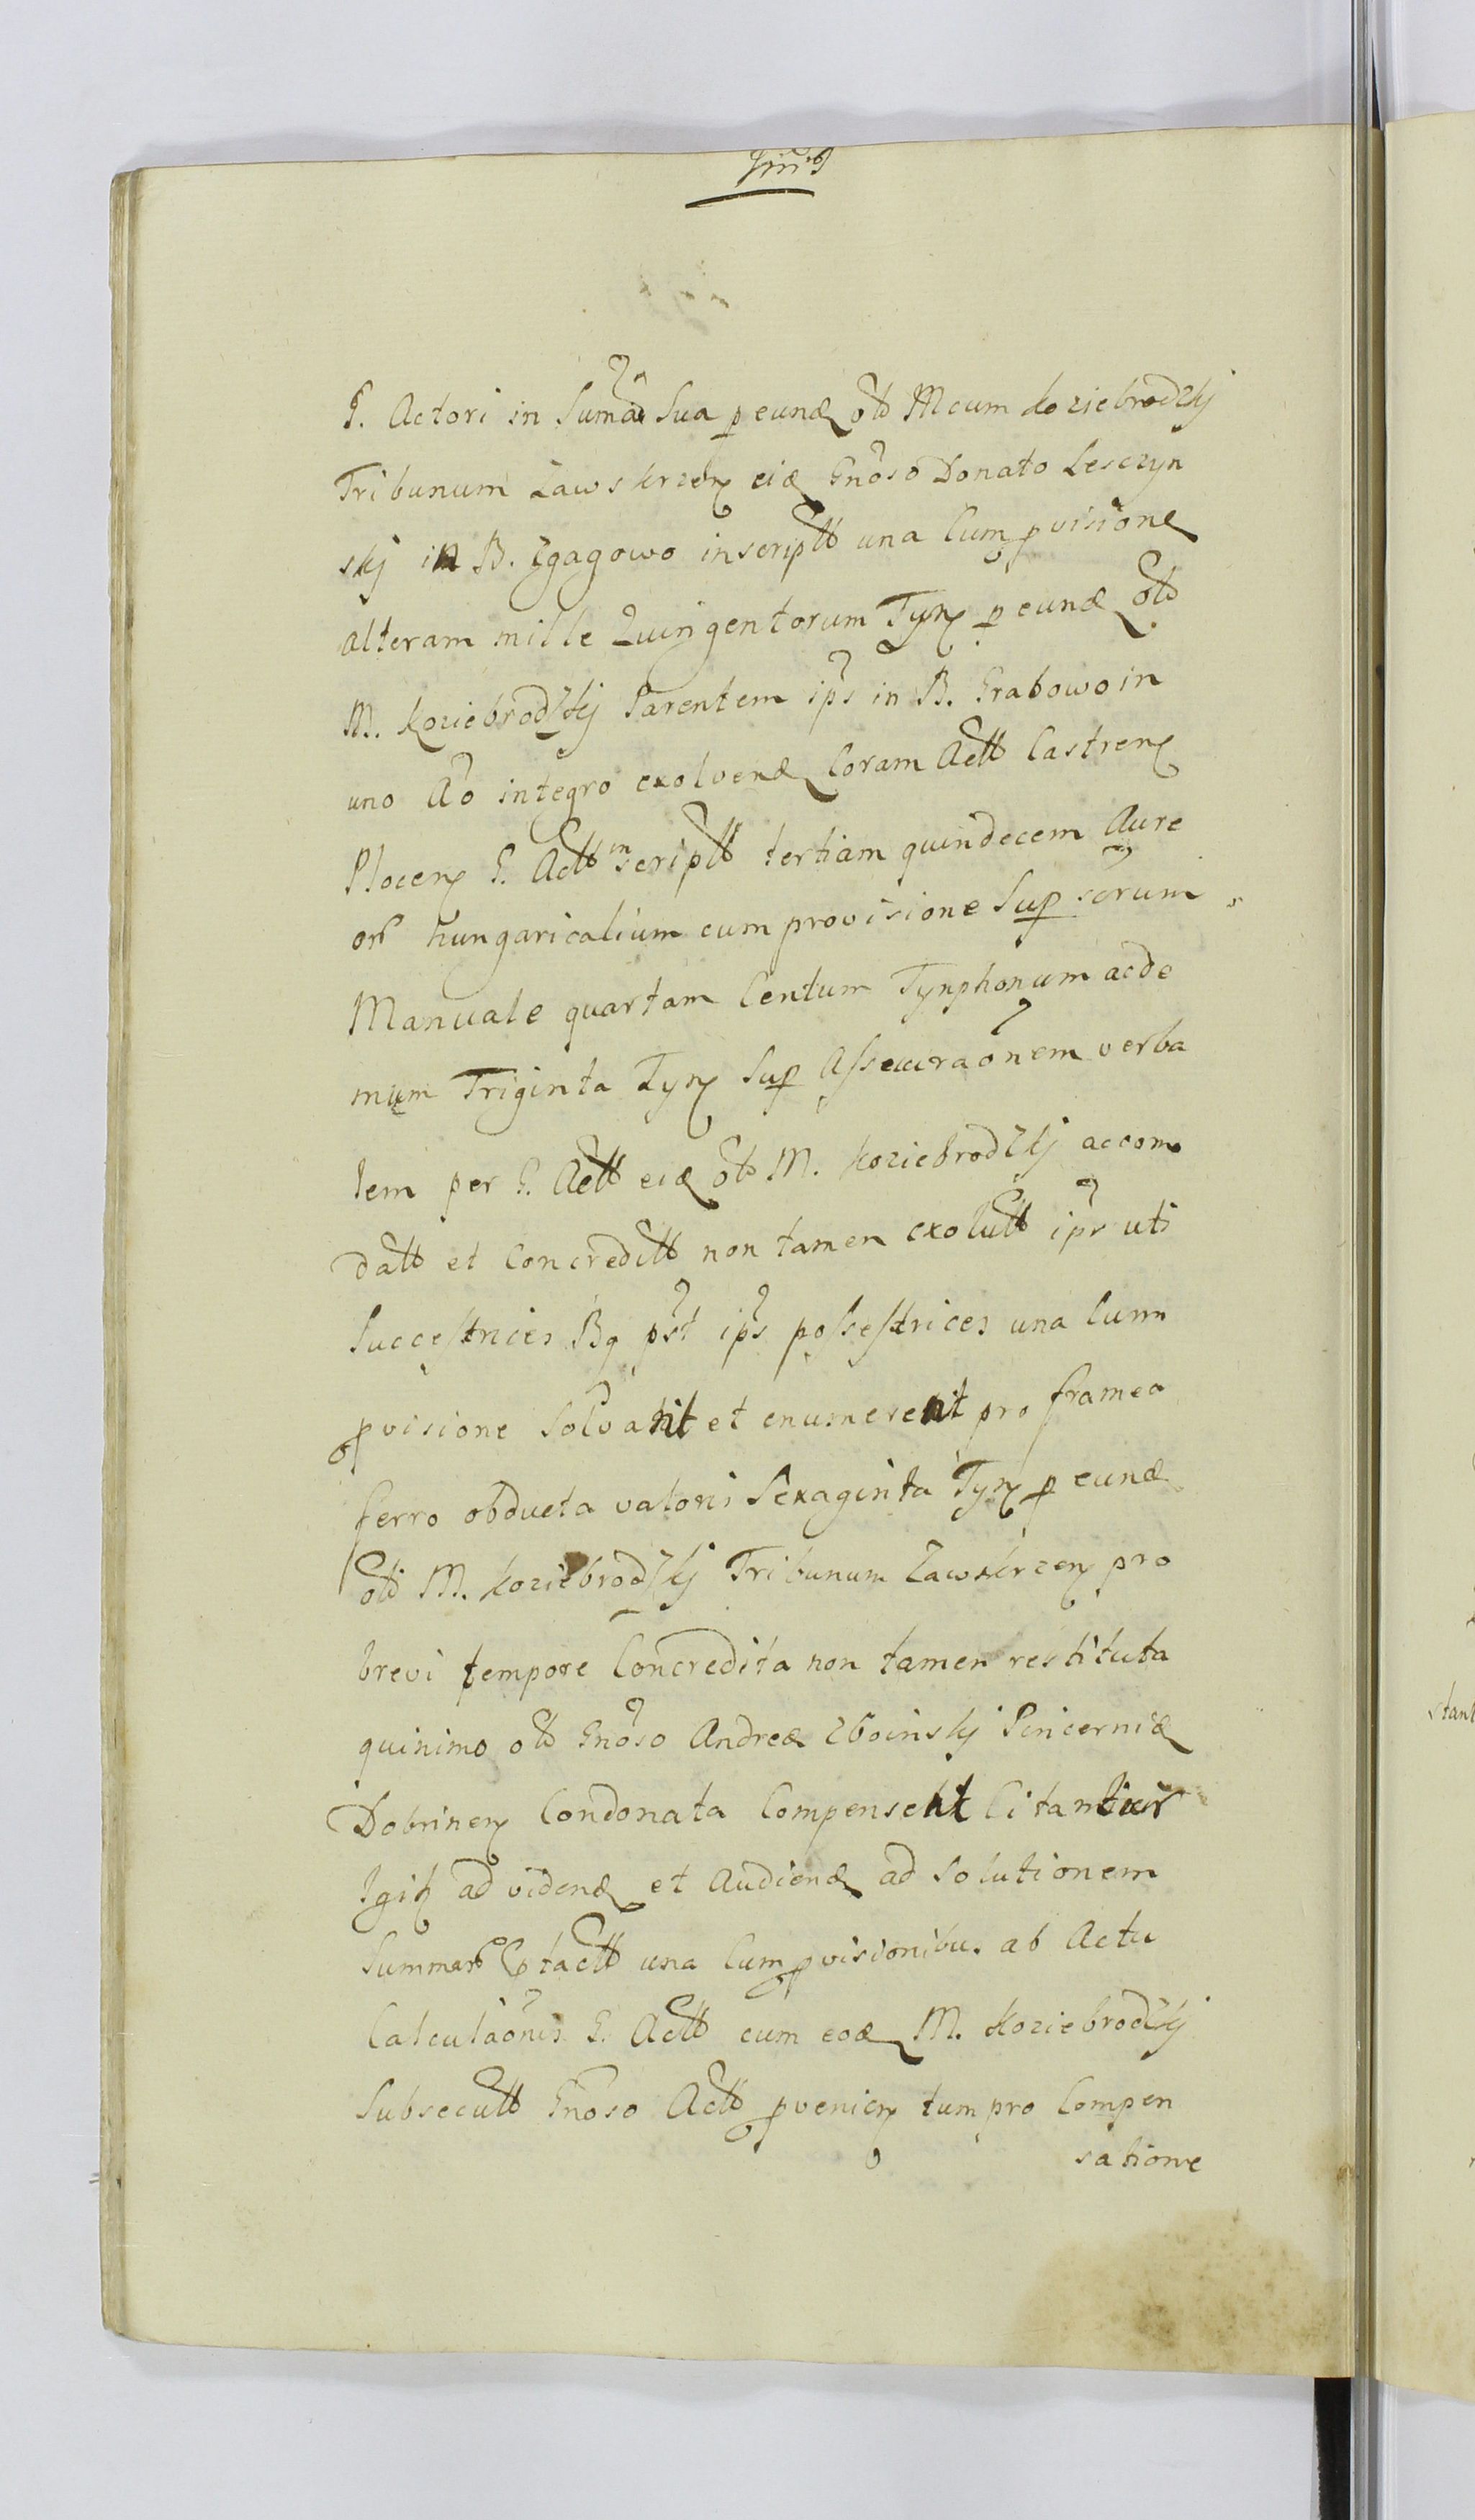 G. Actori in Suma Sua p eund old Mcum Koziebrodzkj
Tribunum Zawskrzen eid Gnoso Donato Lesczyn
skj in B. Zgagowo inscriptt una Cum pvisione
alteram mille Quingentorum Tyn p eund old
M. Koziebrodzkj Parentem ips in B. Grabowo in
uno Ao integro exolvend Coram Actt Castren
Plocen G. Actt inscriptt tertiam quindecem Aure
orr hungaricalium cum provisione Sup scrum
Manuale quartam Centum Tynphonum acde
mum Triginta Tyn Sup Assecuraonem verba
lem per G. Actt eid old M. Koziebrodzkj accomo
datt et Concreditt non tamen exolutt ips uti
Successtrices Bq pst ips possestrices una Cum
pvisione Solvant et enumerent pro framea
ferro obducta valoris Sexaginta Tyn p eund
old M. Koziebrodzkj Tribunum Zawskrzen pro
brevi tempore Concredita non tamen restituta
quinimo old Gnoso Andrea Zboinskj Pincernid
Dobrinen Condonata Compensent Citantur
Igit ad vidend et Audiend ad Solutionem
Summarr tactt una Cum pvisionibus ab Actu
Calculaonis G. Actt cum eod M. Koziebrodzkj
Subsecutt Gnoso Actt pvenien tum pro Compen
satione